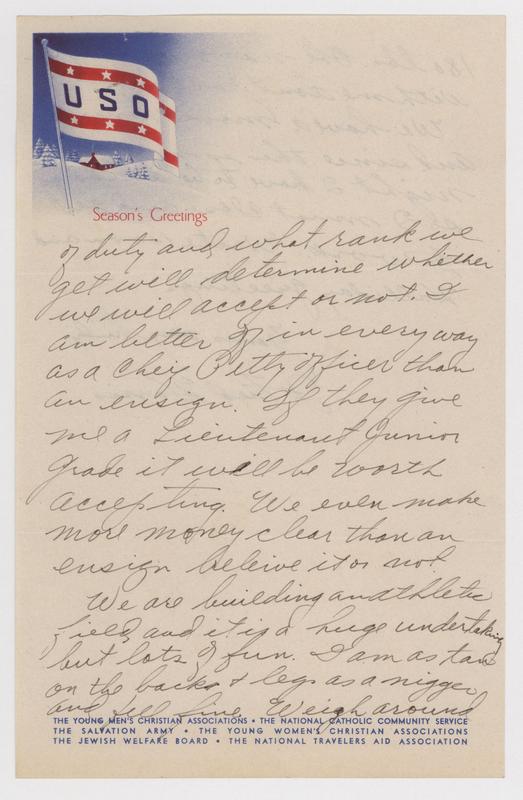 USO
Season's Greetings
of duty and what rank we
get will determine whether
we will accept or not. I
am better off in every way
as a Cheif Petty Officer than
an ensign. If they give
me a Lieutenant Junior
Grade it will be worth
accepting. We even make
more money clear than an
ensign beleive it or not.
We are building an athletic
field, and it is a huge undertaking
but lots of fun. I am as tan
on the backs & legs as a nigger
and feel fine. Weigh around
THE YOUNG MEN'S CHRISTIAN ASSOCIATIONS • THE NATIONAL CATHOLIC COMMUNITY SERVICE
THE SALVATION ARMY • THE YOUNG WOMEN'S CHRISTIAN ASSOCIATIONS
THE JEWISH WELFARE BOARD • THE NATIONAL TRAVELERS AID ASSOCIATION